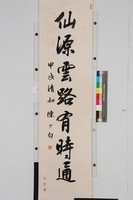 仙源雲路有時通
甲戌清和陳少白